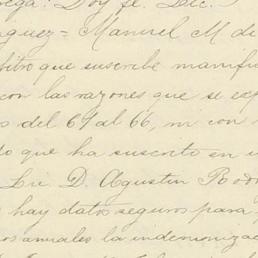 vega: Doy fe. Lic.
nguez = Manuel M de
bitro que suscribe manifi
con las razones que se exp
s del 64 al 66, ni con
do que ha suscrito en u
Lic. D. Agustin Rodr
hay datos seguros para
os anuales la indemnizac